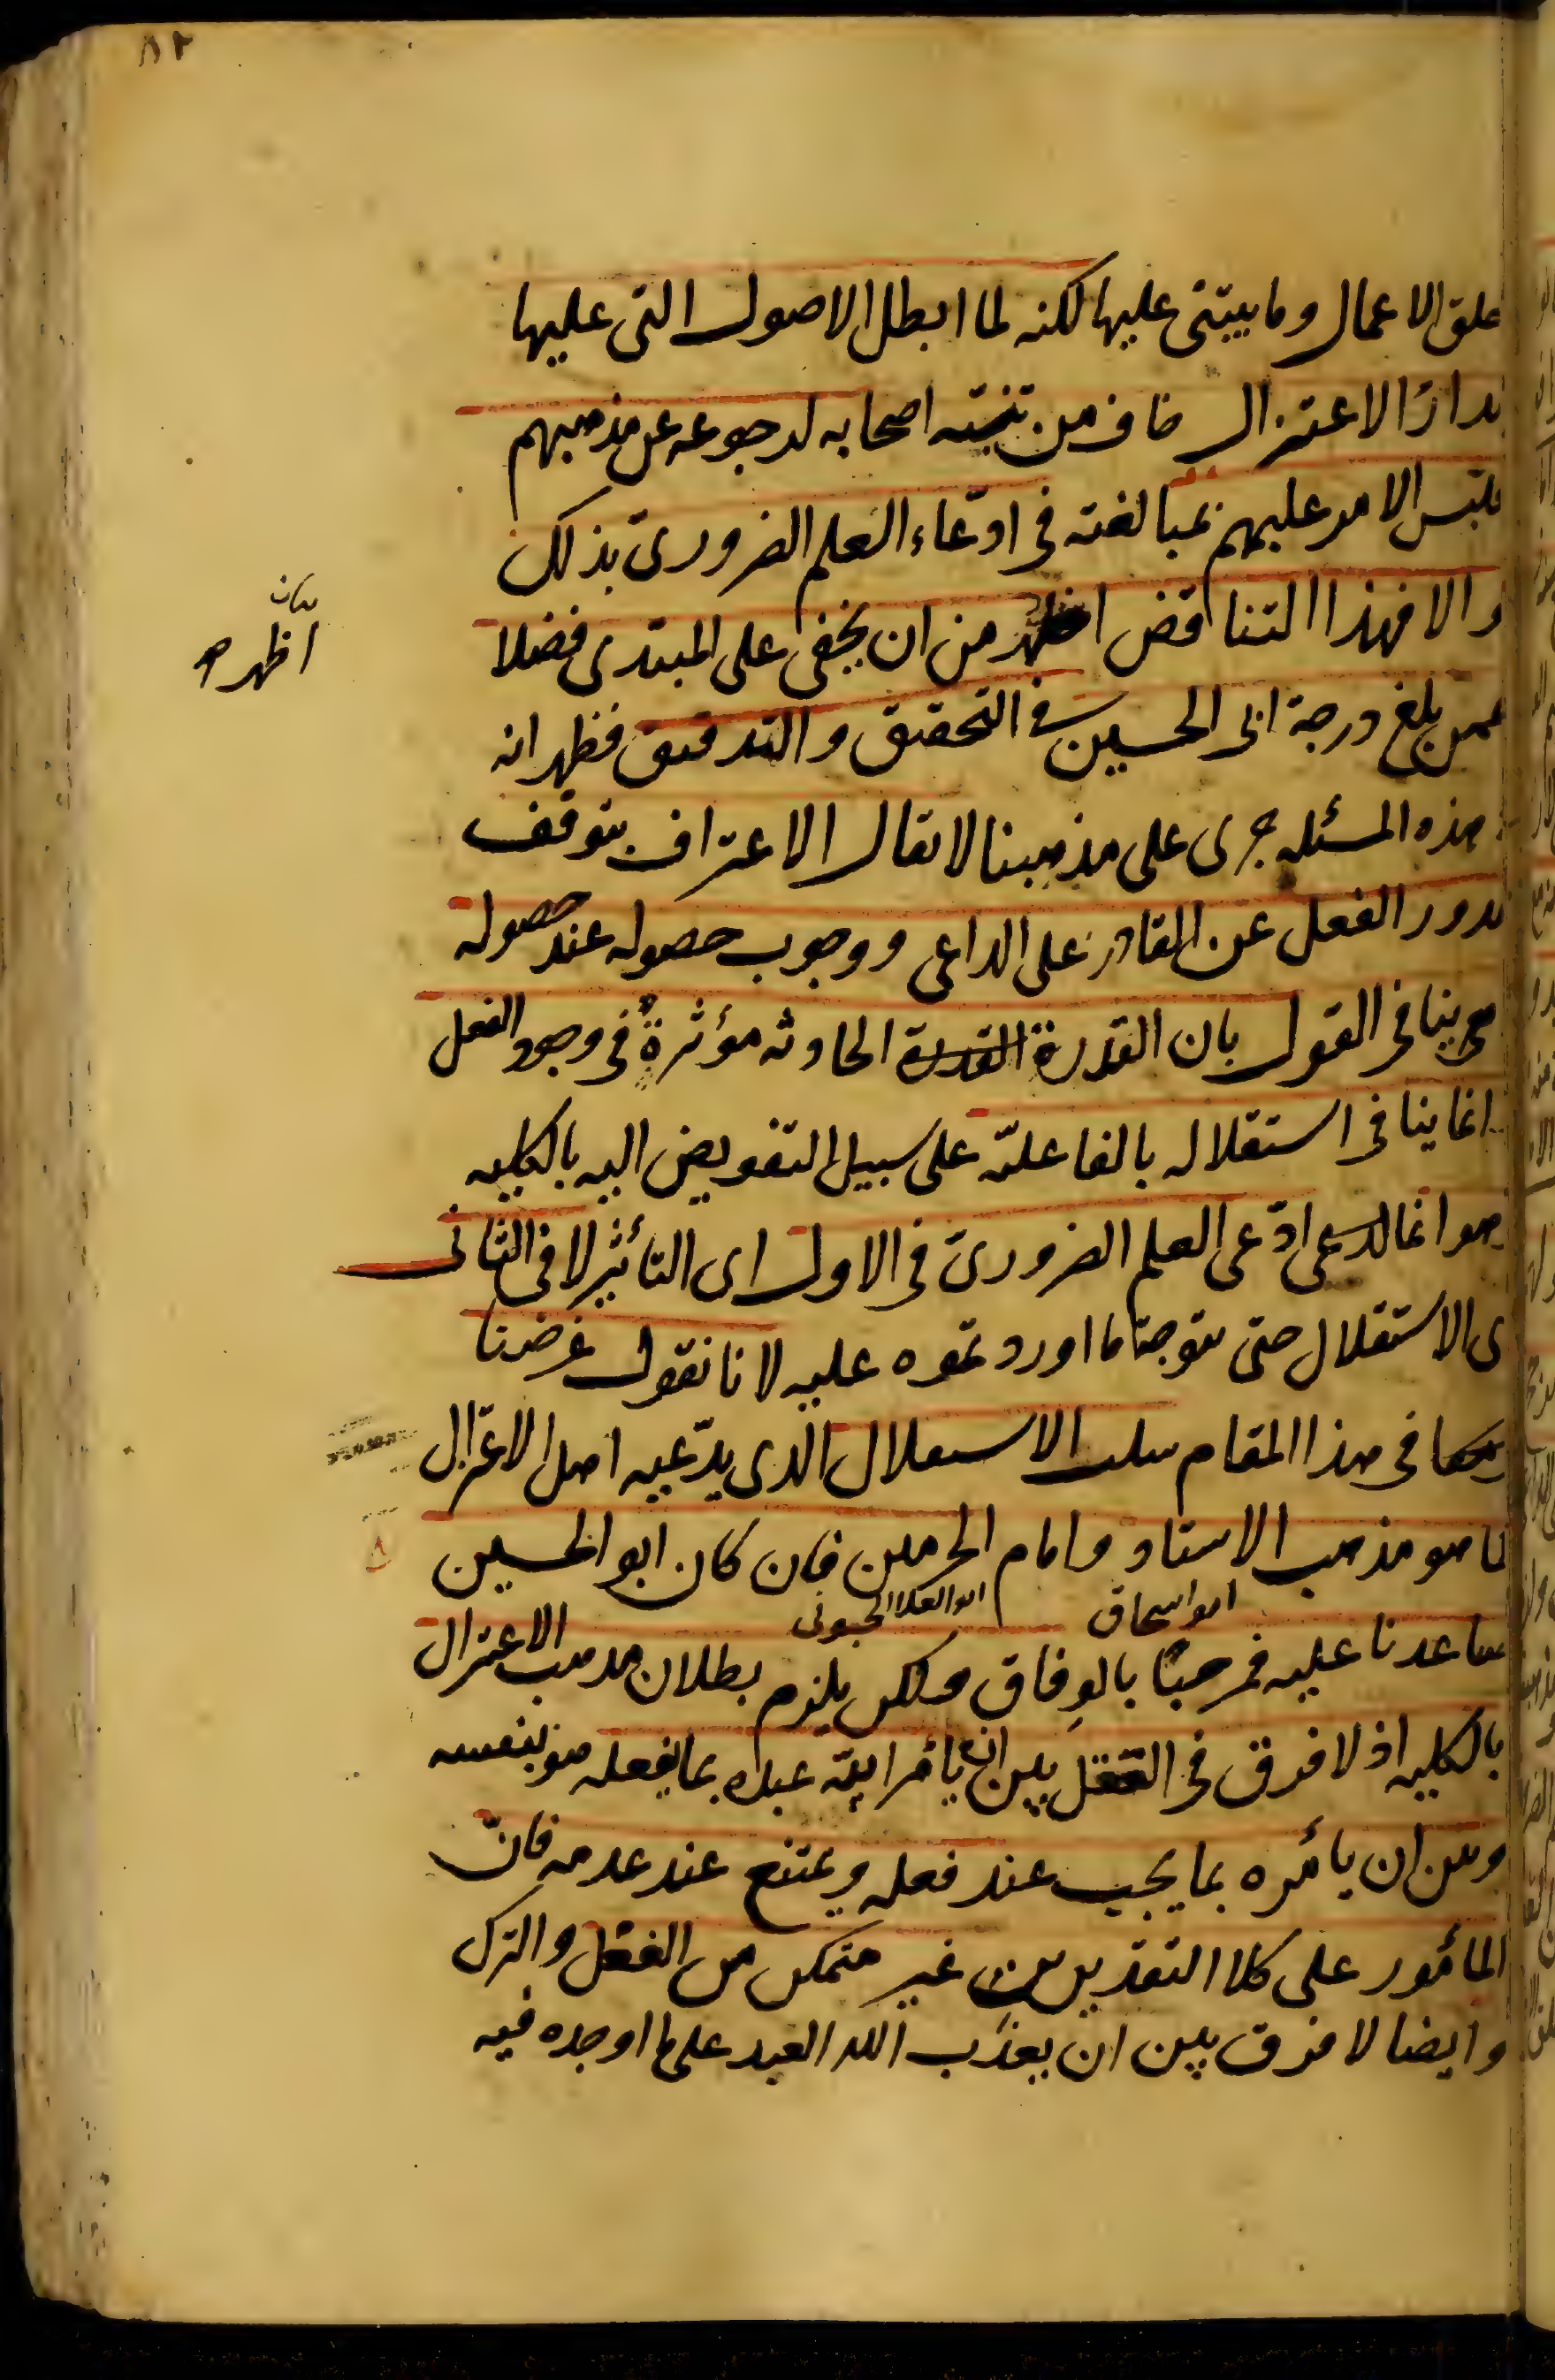 ٨٢
خلق الاعمال وما يبتنى عليها لكنه لما ابطل الاصول التى عليها
مدار الاعتزال خاف من تنبّه اصحابه لرجوعه عن مذهبهم
فلبّس الامر عليهم بمبالغته فى ادّعاء العلم الضرورىّ بذلك
والا فهذا التناقض اظهر من ان يخفى على المبتدى فضلا
بيان
اظهر
عمن بلغ درجة ابى الحسين فى التحقيق والتدقيق فظهر انه
هذه المسئله جرى على مذهبنا لا يقال الاعتراف بتوقف
صدور الفعل عن القادر على الداعى ووجوب حصوله عند حصوله
ينافى القول بان القدرة القدرة الحادثه مؤثرةٌ فى وجود الفعل
انما ينافى استقلاله بالفاعليّه على سبيل التفويض اليه بالكليه
وهو انما ادّعى العلم الضرورىّ فى الاول اى التأثير لا فى الثانى
اى الاستقلال حتى يتوجه ما اورد تموه عليه لانا نقول غرضنا
فى هذا المقام سلب الاستقلال الذى يدّعيه اهل الاعتزال
ما هو مذهب الاستاد وامام الحرمين فان كان ابو الحسين
ابو اسحاق
ابو المعالى الجوينى
ساعدنا عليه فمرحبًا بالوِفاق ولكن يلزم بطلان مذهب الاعتزال
بالكليه اذ لا فرق فى العقل بين ان يأمر الله عبده بما يفعله هو بنفسه
وبين ان يأمره بما يجب عند فعله ويمتنع عند عدمه فانّ
المأمور على كلا التقديرين غير متمكن من الفعل والترك
وايضا لا فرق بين ان يعذّب الله العبد على ما اوجده فيه